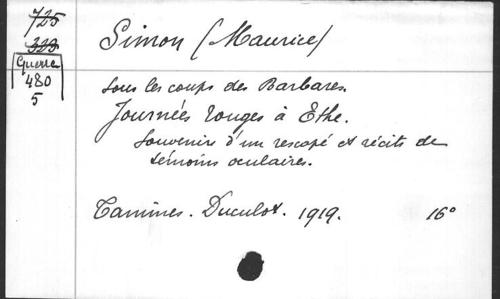 725
323
Guerre
480
5
Simon (Maurice)
Sous les coups des Barbares.
Journées rouges à Ethe.
Souvenirs d'un rescapé et récits de
témoins oculaires.
Tamines. Duculot. 1919. 16°